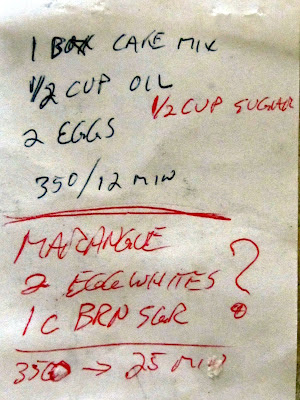 1 BOX CAKE MIX
1/2 CUP OIL
1/2 CUP SUGAR
2 EGGS
350/12 MIN
MARANGUE
2 EGG WHITES ?
1 C BRN SGR
350 → 25 MIN